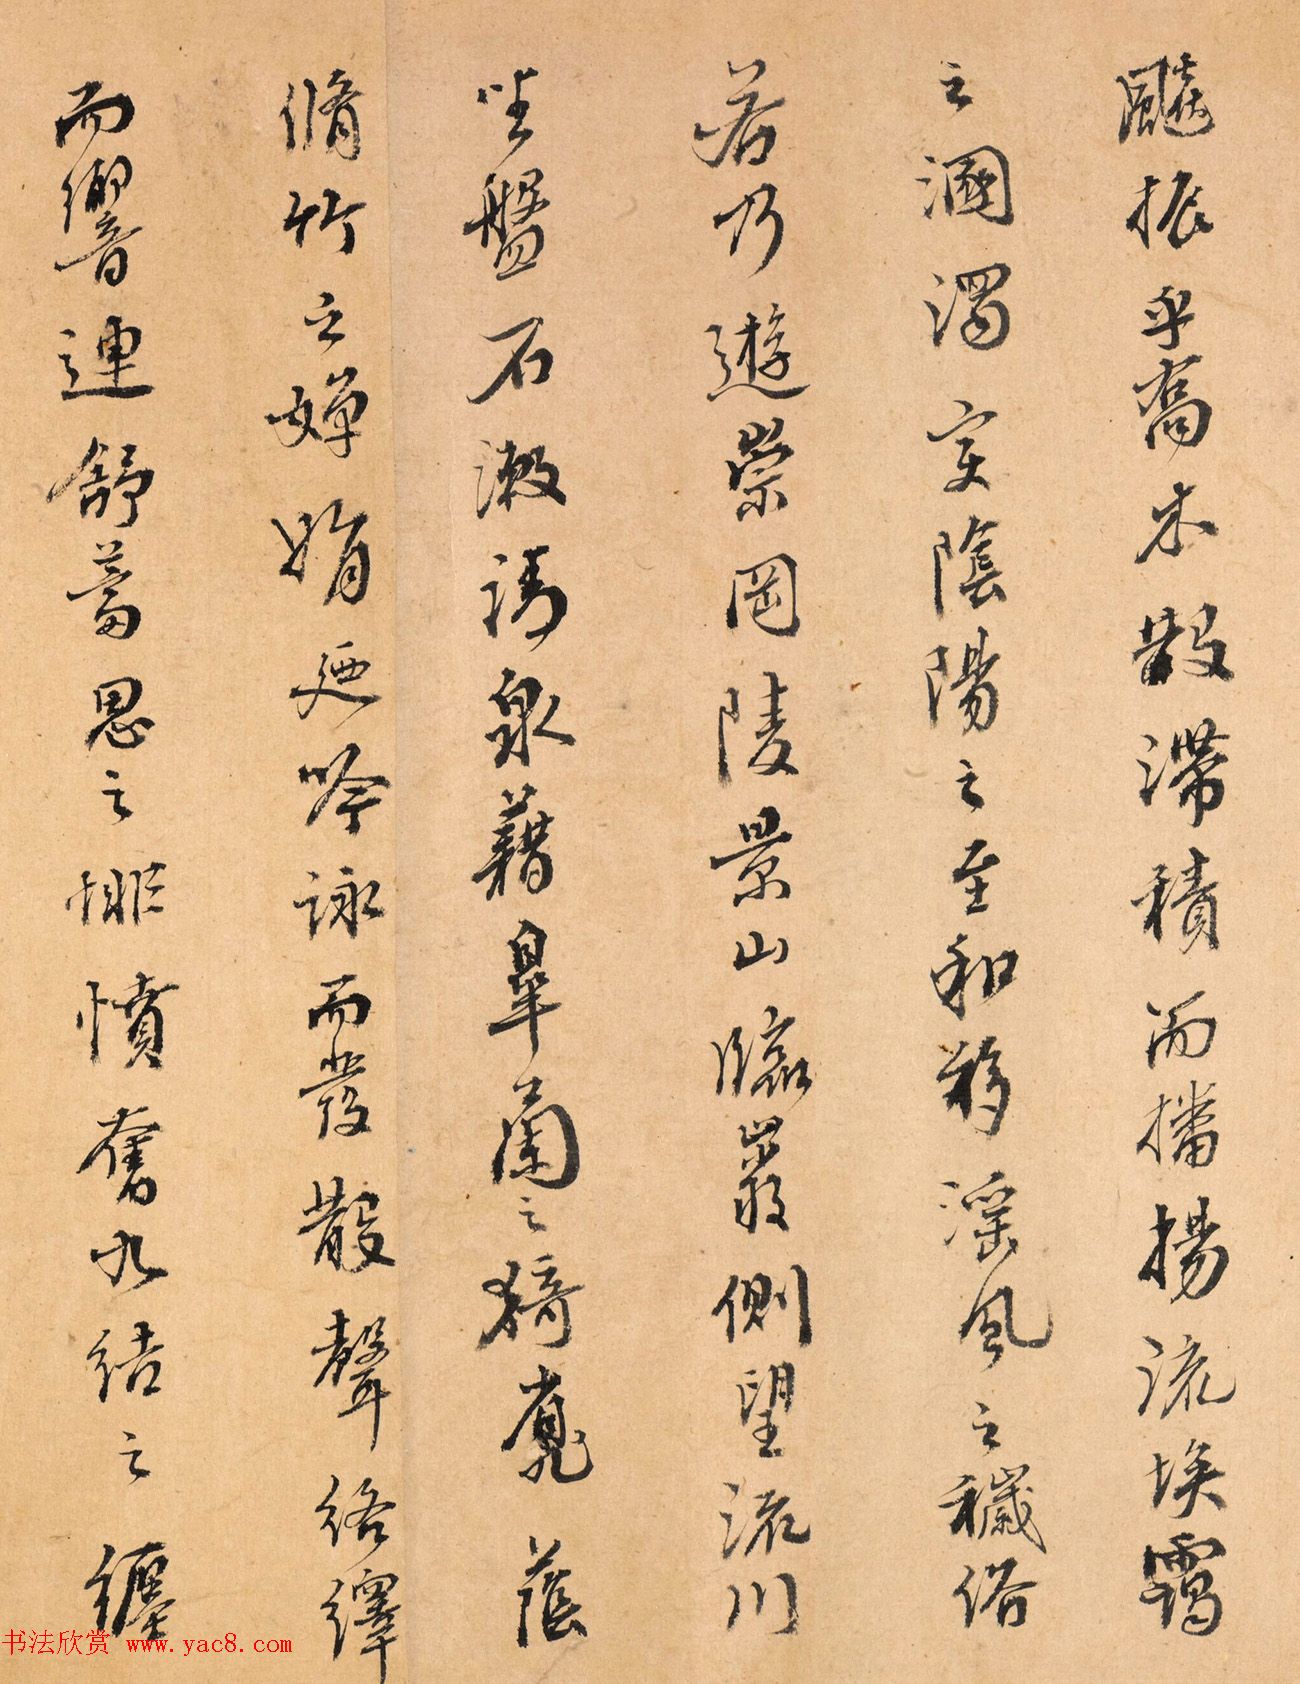 飈振乎喬木散滯積而播揚流埃靄
之溷濁变陰陽之至和移淫風之穢俗
若乃遊崇岡陵景山臨巖側望流川
坐盤石漱清泉藉臯蘭之猗靡蔭
脩竹之蟬娟廼吟詠而發散聲絡繹
而響連舒蓄思之悱憤奮久結之纏
书法欣赏 www.yac8.com